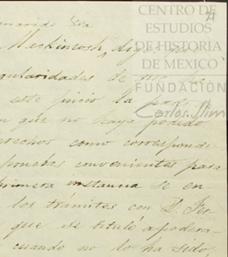 CENTRO DE
ESTUDIOS
DE HISTORIA
DE MEXICO
FUNDACIÓN
Carlos Slim
Mackintosh, digo: que
gularidades de
este juicio la
en que no haya podido
derechos como corresponde
convenientes para
primera instancia se en
los trámites con D. Fer
que se tituló apodera
cuando no lo ha sido,